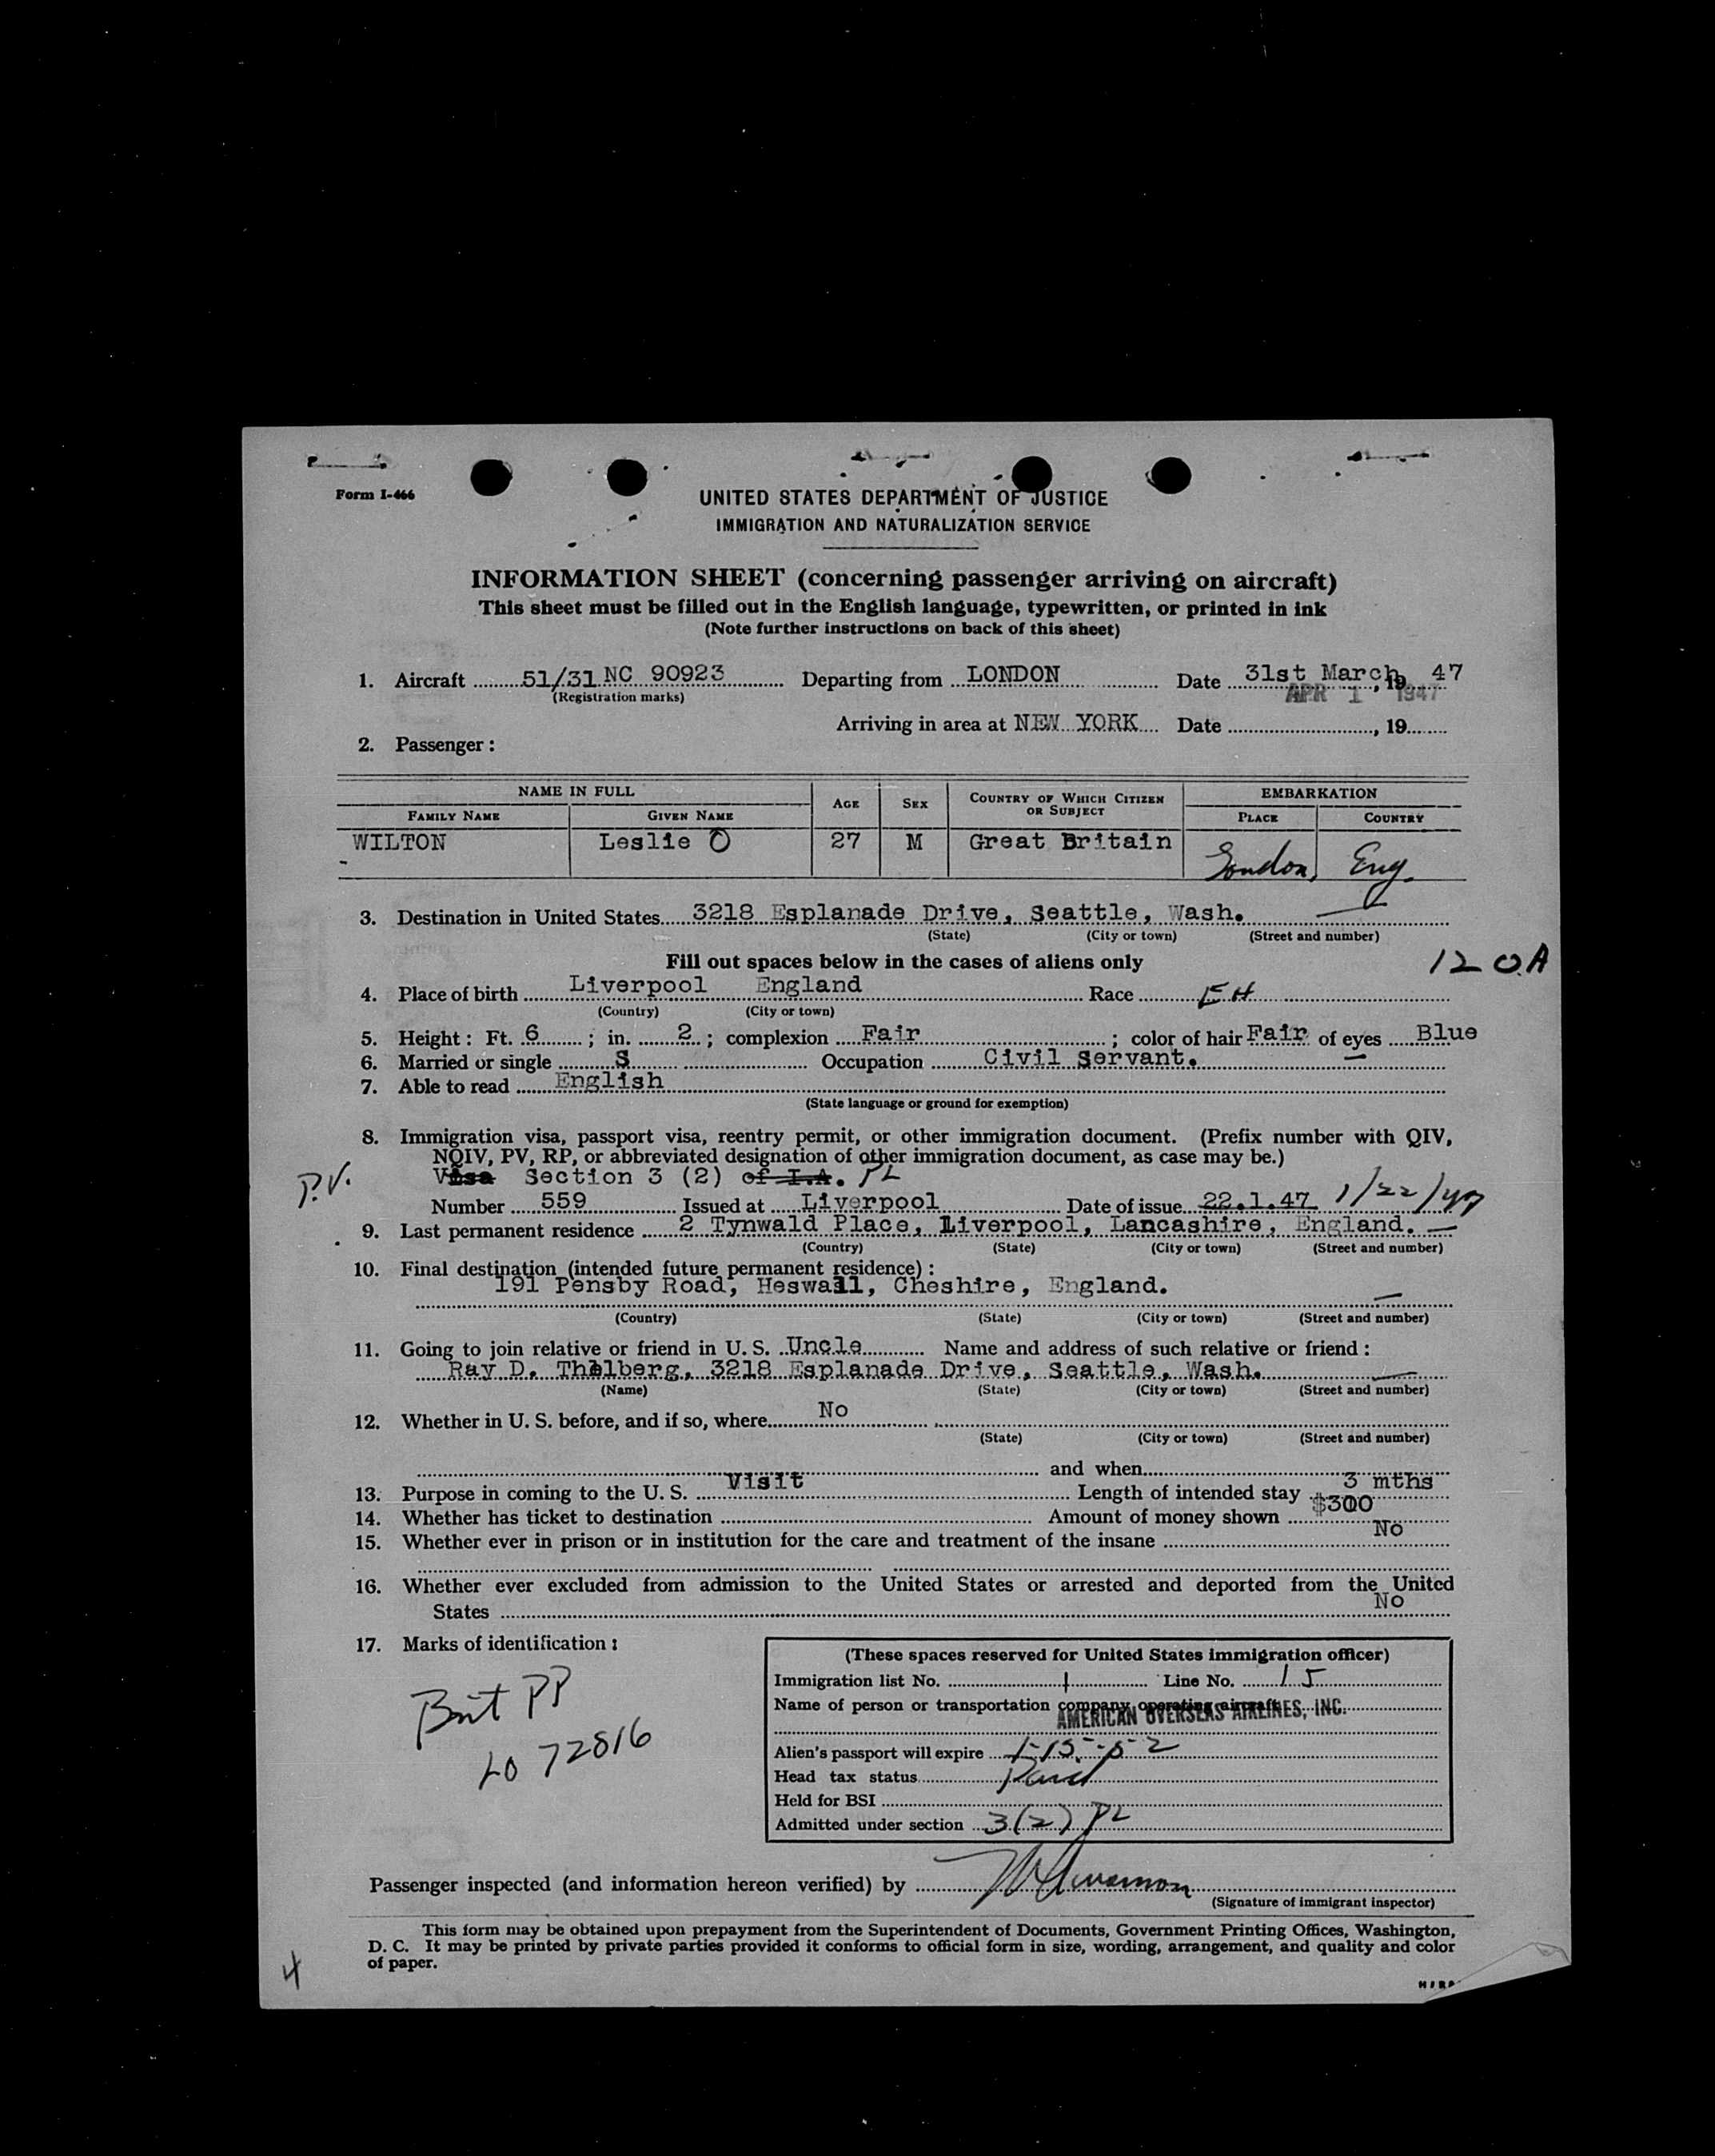 Form I-466
UNITED STATES DEPARTMENT OF JUSTICE
IMMIGRATION AND NATURALIZATION SERVICE
INFORMATION SHEET (concerning passenger arriving on aircraft)
This sheet must be filled out in the English language, typewritten, or printed in ink
(Note further instructions on back of this sheet)
1. Aircraft 51/31 NC 90923 Departing from LONDON Date 31st March, 19 47
(Registration marks) APR 1 1947
Arriving in area at NEW YORK Date , 19
2. Passenger:
NAME IN FULL AGE SEX COUNTRY OF WHICH CITIZEN OR SUBJECT EMBARKATION
FAMILY NAME GIVEN NAME PLACE COUNTRY
WILTON Leslie O 27 M Great Britain London, Eng.
3. Destination in United States 3218 Esplanade Drive, Seattle, Wash.
(State) (City or town) (Street and number)
Fill out spaces below in the cases of aliens only
120A
4. Place of birth Liverpool England Race EH
(Country) (City or town)
5. Height: Ft. 6; in. 2; complexion Fair; color of hair Fair of eyes Blue
6. Married or single S Occupation Civil Servant.
7. Able to read English
(State language or ground for exemption)
8. Immigration visa, passport visa, reentry permit, or other immigration document. (Prefix number with QIV,
NQIV, PV, RP, or abbreviated designation of other immigration document, as case may be.)
P.V. Visa Section 3 (2) of I.A. PL
Number 559 Issued at Liverpool Date of issue 22.1.47 1/22/47
9. Last permanent residence 2 Tynwald Place, Liverpool, Lancashire, England.
(Country) (State) (City or town) (Street and number)
10. Final destination (intended future permanent residence):
191 Pensby Road, Heswall, Cheshire, England.
(Country) (State) (City or town) (Street and number)
11. Going to join relative or friend in U. S. Uncle Name and address of such relative or friend:
Ray D. Thelberg, 3218 Esplanade Drive, Seattle, Wash.
(Name) (State) (City or town) (Street and number)
12. Whether in U. S. before, and if so, where No
(State) (City or town) (Street and number)
and when
13. Purpose in coming to the U. S. Visit Length of intended stay 3 mths
14. Whether has ticket to destination Amount of money shown $300
15. Whether ever in prison or in institution for the care and treatment of the insane No
16. Whether ever excluded from admission to the United States or arrested and deported from the United
States No
17. Marks of identification:
Brit PP
LO 72816
(These spaces reserved for United States immigration officer)
Immigration list No. 1 Line No. 15
Name of person or transportation company operating aircraft
AMERICAN OVERSEAS AIRLINES, INC.
Alien's passport will expire 1-15-52
Head tax status Paid
Held for BSI
Admitted under section 3(2) PL
Passenger inspected (and information hereon verified) by
(Signature of immigrant inspector)
This form may be obtained upon prepayment from the Superintendent of Documents, Government Printing Offices, Washington,
D. C. It may be printed by private parties provided it conforms to official form in size, wording, arrangement, and quality and color
of paper.
4